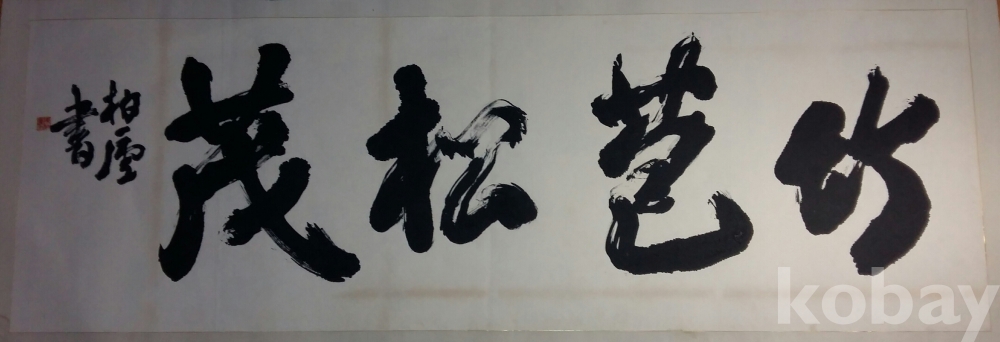 竹苞松茂
柏
書
kobay